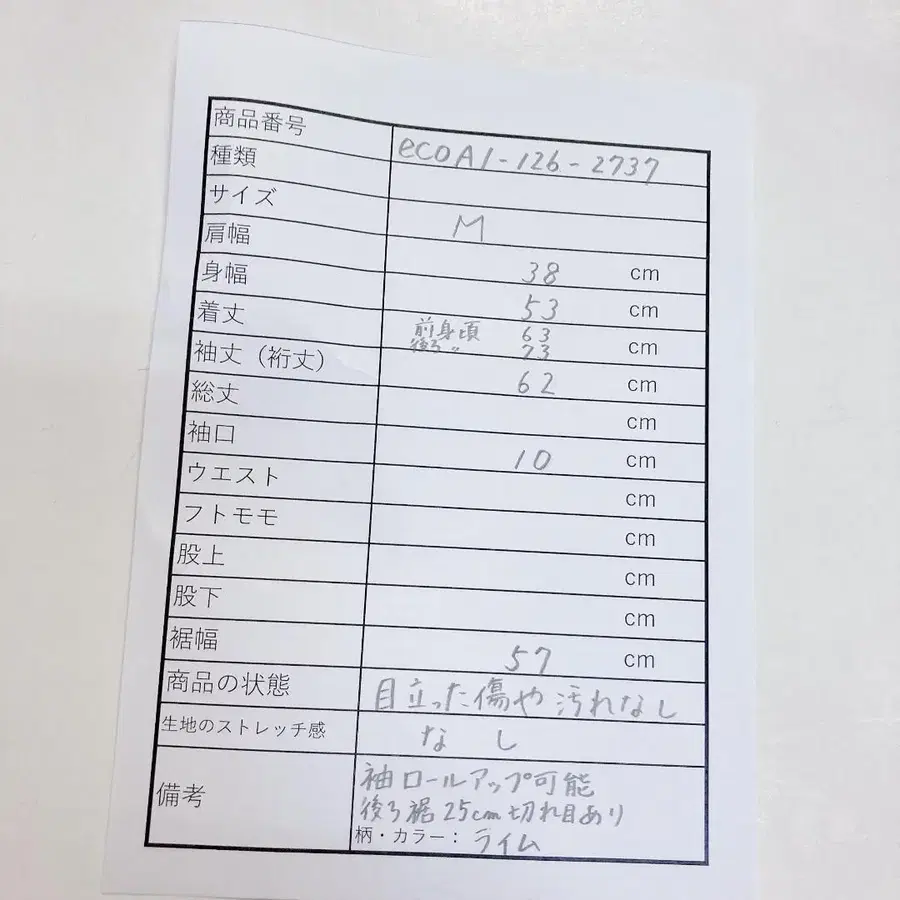 商品番号 ecoA1-126-2737
種類
サイズ M
肩幅 38 cm
身幅 53 cm
着丈 前身頃 63 cm
後ろ 〃 73
袖丈（裄丈） 62 cm
総丈 cm
袖口 10 cm
ウエスト cm
フトモモ cm
股上 cm
股下 cm
裾幅 57 cm
商品の状態 目立った傷や汚れなし
生地のストレッチ感 なし
備考 袖ロールアップ可能
後ろ裾25cm切れ目あり
柄・カラー：ライム